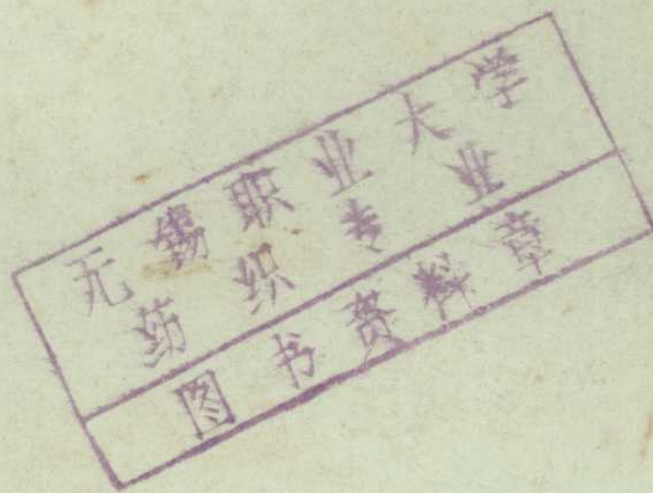 无锡职业大学
纺织专业
图书资料章